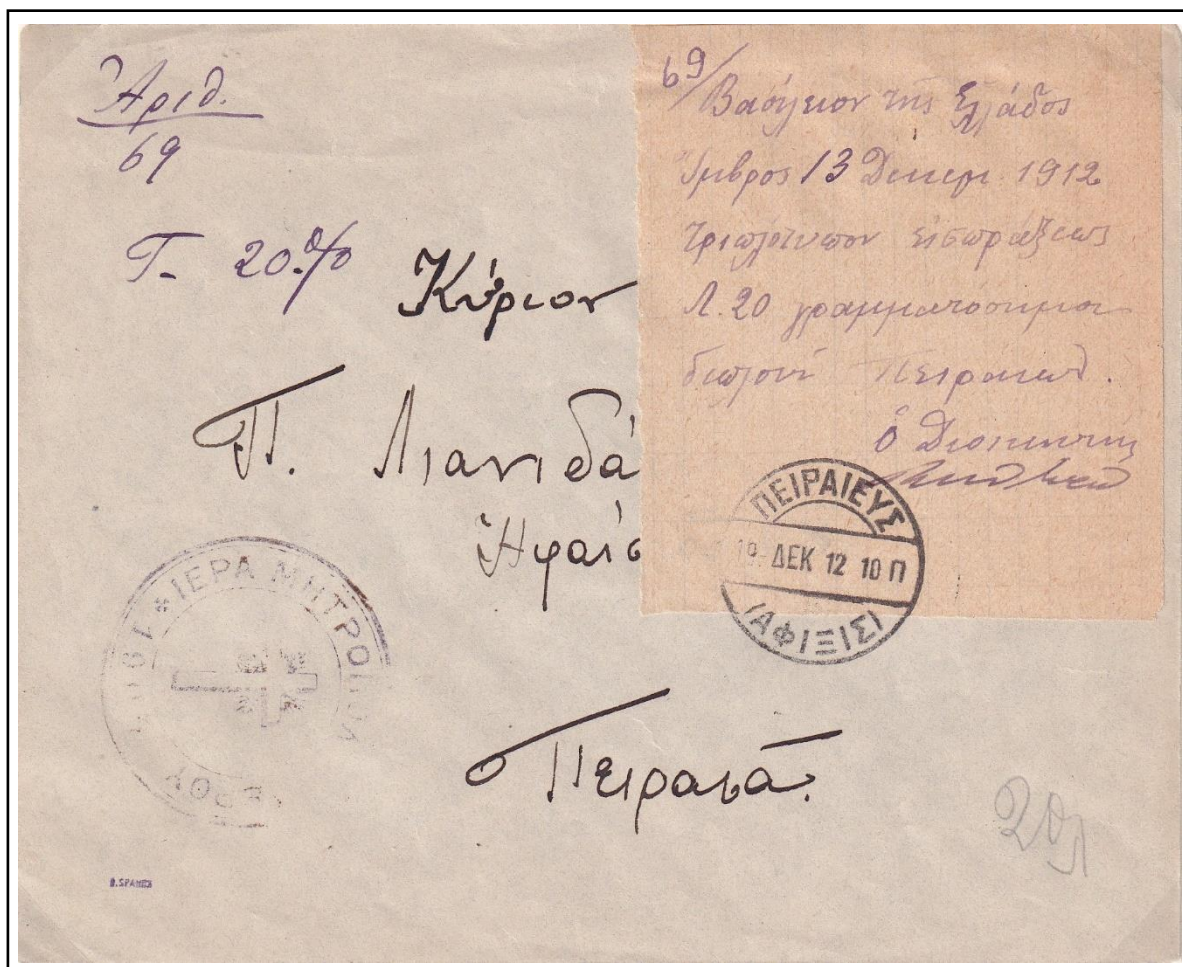 Ἀριθ.
69
T- 20.%
Κύριον
Π. Λιανιδά
Ἡφαισ
Πειραιᾶ.
69/
Βασίλειον της Ελλάδος
Ίμβρος 13 Δεκεμ. 1912
εισπράξεως
Λ. 20 γραμματόσημον
Πειραιωσ.
ὁ Διοικητής
ΠΕΙΡΑΙΕΥΣ
19- ΔΕΚ 12 10 Π
(ΑΦΙΞΙΣ)
* ΙΕΡΑ ΜΗΤΡΟΠ
20λ